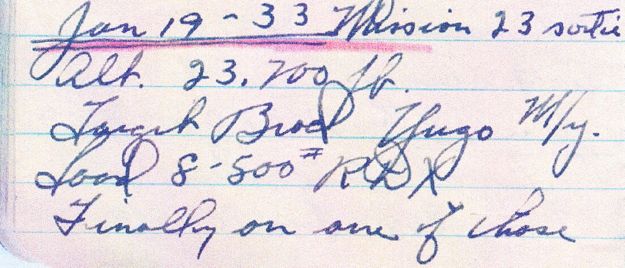 Jan 19 - 33 Mission 23 sortie
Alt. 23,700 ft.
Target Brod Yugo M/y.
Load 8-500# RDX
Finally on one of those